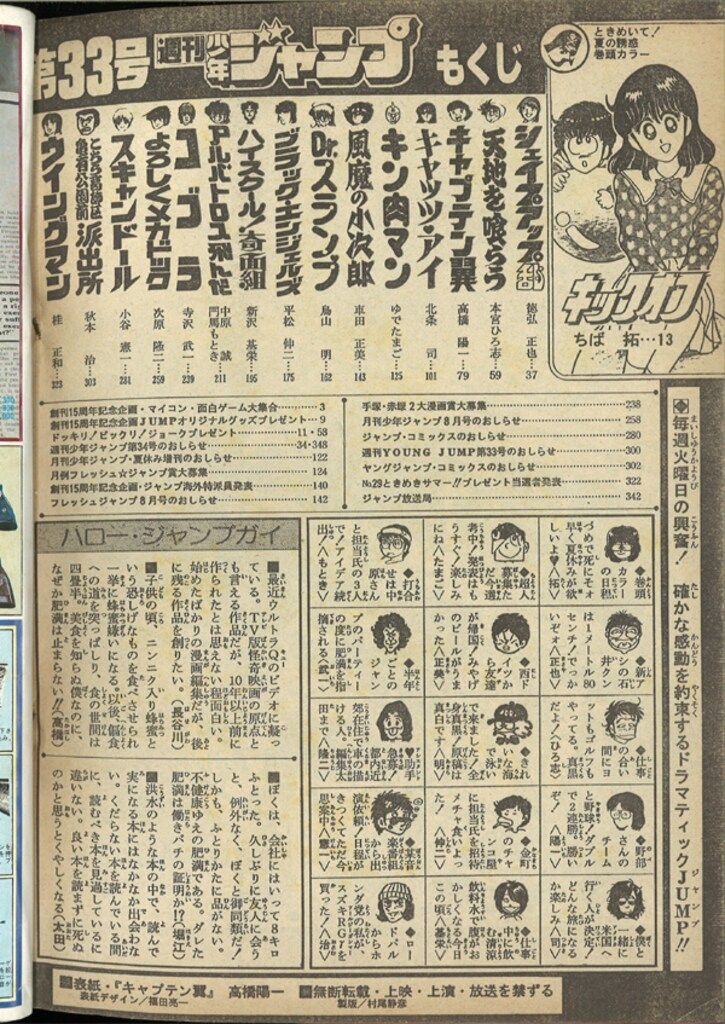 第33号 週刊少年ジャンプ もくじ
ときめいて!
夏の誘惑
巻頭カラー
キックオフ
ちば 拓…13
シェイプアップ乱 徳弘 正也…37
天地を喰らう 本宮ひろ志…59
キャプテン翼 高橋 陽一…79
キャッツ・アイ 北条 司…101
キン肉マン ゆでたまご…125
風魔の小次郎 車田 正美…143
Dr.スランプ 鳥山 明…162
ブラック・エンジェルズ 平松 伸二…175
ハイスクール!奇面組 新沢 基栄…195
アルバトロス飛んだ 中原 誠 門馬もとき…211
コブラ 寺沢 武一…239
よろしくメカドック 次原 隆二…259
スキャンドール 小谷 憲一…281
こちら葛飾区亀有公園前派出所 秋本 治…303
ウイングマン 桂 正和…323
創刊15周年記念企画・マイコン・面白ゲーム大集合…3
創刊15周年記念企画JUMPオリジナルグッズプレゼント…9
ドッキリ!ビックリ!ジョークプレゼント…11・58
週刊少年ジャンプ第34号のおしらせ…34・348
月刊少年ジャンプ・夏休み増刊のおしらせ…122
月例フレッシュ☆ジャンプ賞大募集…124
創刊15周年記念企画・ジャンプ海外特派員発表…140
フレッシュジャンプ8月号のおしらせ…142
手塚・赤塚2大漫画賞大募集…238
月刊少年ジャンプ8月号のおしらせ…258
ジャンプ・コミックスのおしらせ…280
週刊YOUNG JUMP第33号のおしらせ…300
ヤングジャンプ・コミックスのおしらせ…302
No.29ときめきサマー!!プレゼント当選者発表…322
ジャンプ放送局…342
◆毎週火曜日の興奮! 確かな感動を約束するドラマティックJUMP!!
◆巻頭カラーの日程づめで死にそォ早く夏休みが欲しいよ♥〈拓〉
◆新アシの石井クンは一メートル80センチ!でっかいぞォ〈正也〉
◆仕事の合い間にヨットもゴルフもやってる。真黒だよ!〈ひろ志〉
◆野部さんのチームと野球!ダブルで2連勝。勝いぞ!〈陽一〉
◆僕と一緒に米国へ行く人が決定!どんな旅になるか楽しみ〈司〉
◆超人募集だ今選考中!発表はもうすぐ!楽しみにね〈たまご〉
◆西ドイツから友達が帰国!みやげのビールがうまかった〈正美〉
◆きれいな海で泳いで来ました!全身真黒!原稿は真白です〈明〉
◆金町のチャンコ屋に担当氏を招待メチャ食いよった!〈伸二〉
◆仕事中に飲む清涼飲料水で腹がおかしくなる今日この頃〈基栄〉
◆打合せは中原さんと担当氏の3人で!アイデア続出!〈もとき〉
◆半年ごとのジャンプのパーティーの度に肥満を指摘される〈武一〉
◆助手急募!都内近郊在住で車の描ける人。編集太田まで〈隆二〉
◆某音楽番組から出演依頼!日程がきつくてただ今思案中〈憲一〉
◆ロードパルからホンダ党の私がスズキRGrを買った!〈治〉
ハロー・ジャンプガイ
■最近ウルトラQのビデオに凝っている。TV版怪奇映画の原点とも言える作品だが、10年以上前に作られたとは思えない程面白い。始めたばかりの漫画編集だが、後に残る作品を創りたい。〈長谷川〉
■子供の頃、ニンニク入り蜂蜜という恐しげなものを食べさせられ一挙に蜂蜜嫌いになる。以後、偏食への道を突っぱしり、食の世間は四畳半。美食を知らぬ僕なのに、なぜか肥満は止まらない!!〈高橋〉
■ぼくは、会社にはいって8キロふとった。久しぶりに友人に会うと、例外なく、ぼくと御同類だ!しかも、ふとりかたに品がない。不健康ゆえの肥満である。ダレた肥満は働きバチの証明か!?〈堀江〉
■洪水のような本の中で、読んで実になる本にはなかなか出会わない。くだらない本を読んでいる間に、読むべき本を見過しているに違いない。良い本を読まずに死ぬのかと思うとくやしくなる〈太田〉
■表紙・『キャプテン翼』 高橋陽一 ■無断転載・上映・上演・放送を禁ずる
表紙デザイン／福田亮一 製版／村尾静彦